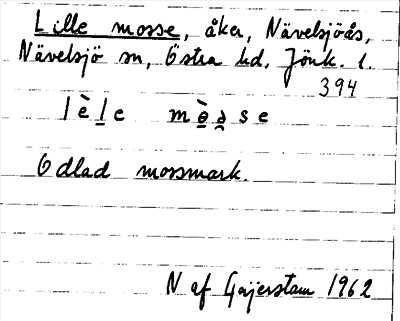 Lille mosse, åker, Nävelsjöås,
Nävelsjö sn, Östra hd, Jönk. l.
394
lèl̲e mò̲ə̯se
Odlad mossmark.
N af Gejerstam 1962